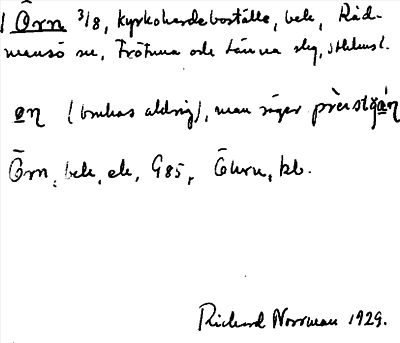 1 Örn 3/8, kyrkoherdeboställe, bek, Råd-
mansö sn, Frötuna och Länna slg, Sthlms l.
øɳ (brukas aldrig), man säger prè̀stgá̀ɳ
Örn, bek, ek, G85, Öhrn, kb.
Richard Norrman 1929.